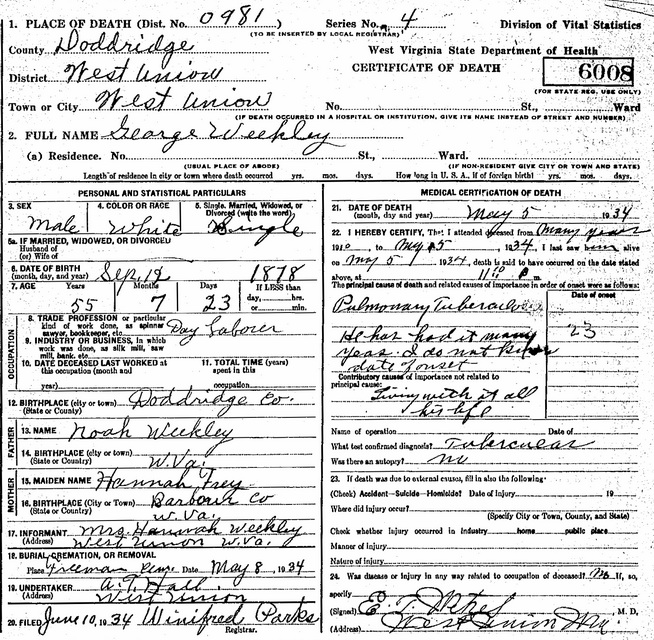 1. PLACE OF DEATH (Dist. No. 0981) Series No. 4 Division of Vital Statistics
(TO BE INSERTED BY LOCAL REGISTRAR)
County Doddridge West Virginia State Department of Health
District West Union CERTIFICATE OF DEATH 6008
(FOR STATE REG. USE ONLY)
Town or City West Union No. St., Ward
(IF DEATH OCCURRED IN A HOSPITAL OR INSTITUTION, GIVE ITS NAME INSTEAD OF STREET AND NUMBER)
2. FULL NAME George Weekley
(a) Residence. No. St., Ward.
(USUAL PLACE OF ABODE) (IF NON-RESIDENT GIVE CITY OR TOWN AND STATE)
Length of residence in city or town where death occurred yrs. mos. days. How long in U. S. A., if of foreign birth? yrs. mos. days.
PERSONAL AND STATISTICAL PARTICULARS
3. SEX 4. COLOR OR RACE 5. Single, Married, Widowed, or
Divorced (write the word)
Male White Single
5a. IF MARRIED, WIDOWED, OR DIVORCED
Husband of
(or) Wife of
6. DATE OF BIRTH
(month, day, and year) Sep. 12 1878
7. AGE Years Months Days If LESS than
55 7 23 day, hrs.
or min.
OCCUPATION
8. TRADE, PROFESSION, or particular
kind of work done, as spinner,
sawyer, bookkeeper, etc. Day Laborer
9. INDUSTRY OR BUSINESS, in which
work was done, as silk mill, saw
mill, bank, etc.
10. DATE DECEASED LAST WORKED at
this occupation (month and
year)
11. TOTAL TIME (years)
spent in this
occupation
12. BIRTHPLACE (city or town) Doddridge Co.
(State or County)
FATHER
13. NAME Noah Weekley
14. BIRTHPLACE (city or town)
(State or Country) W. Va.
MOTHER
15. MAIDEN NAME Hannah Frey
16. BIRTHPLACE (City or Town) Barbour Co
(State or Country) W. Va.
17. INFORMANT Mrs. Hannah Weekley
(Address) West Union W. Va.
18. BURIAL, CREMATION, OR REMOVAL
Place Freeman Date May 8, 1934
19. UNDERTAKER A. T. Hall
(Address) West Union
20. FILED June 10, 1934 Winifred Parks
Registrar.
MEDICAL CERTIFICATION OF DEATH
21. DATE OF DEATH
(month, day, and year) May 5 1934
22. I HEREBY CERTIFY, That I attended deceased from Many years
19 to May 5, 1934, I last saw him alive
on May 5 1934, death is said to have occurred on the date stated
above, at 11 m.
The principal cause of death and related causes of importance in order of onset were as follows:
Date of onset
Pulmonary Tuberculosis
23
He has had it many
years. I do not know
date of onset
Contributory causes of importance not related to
principal cause:
Living with it all
his life
Name of operation Date of
What test confirmed diagnosis? Tubercular
Was there an autopsy? no
23. If death was due to external causes, fill in also the following:
(Check) Accident—Suicide—Homicide? Date of injury 19
Where did injury occur?
(Specify City or Town, County, and State)
Check whether injury occurred in industry home public place
Manner of injury
Nature of injury
24. Was disease or injury in any way related to occupation of deceased? No If, so,
specify
(Signed) M. D.
(Address) West Union